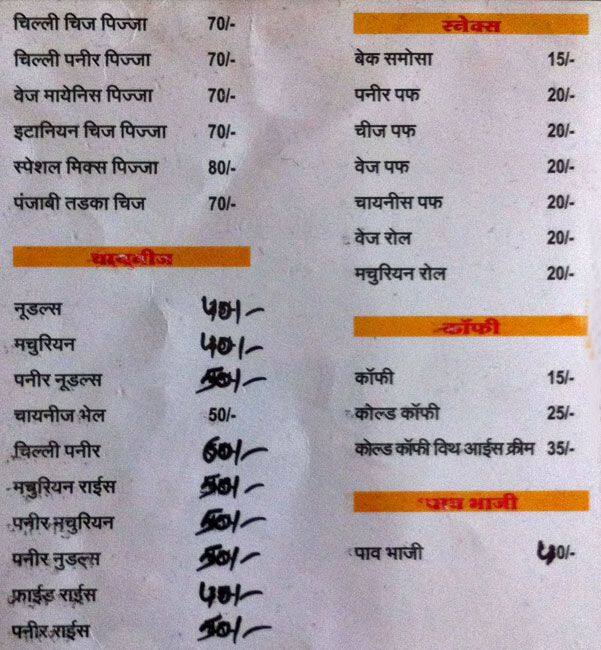 चिल्ली चिज पिज्जा 70/-
चिल्ली पनीर पिज्जा 70/-
वेज मायेनिस पिज्जा 70/-
इटानियन चिज पिज्जा 70/-
स्पेशल मिक्स पिज्जा 80/-
पंजाबी तडका चिज 70/-
चायनीज
नूडल्स
मचुरियन
पनीर नूडल्स 50/-
चायनीज भेल 50/-
चिल्ली पनीर 60/-
मचुरियन राईस 50/-
पनीर मचुरियन 50/-
पनीर नुडल्स 50/-
फ्राईड राईस
पनीर राईस 50/-
स्नेक्स
बेक समोसा 15/-
पनीर पफ 20/-
चीज पफ 20/-
वेज पफ 20/-
चायनीस पफ 20/-
वेज रोल 20/-
मचुरियन रोल 20/-
कॉफी
कॉफी 15/-
कोल्ड कॉफी 25/-
कोल्ड कॉफी विथ आईस क्रीम 35/-
पाव भाजी
पाव भाजी